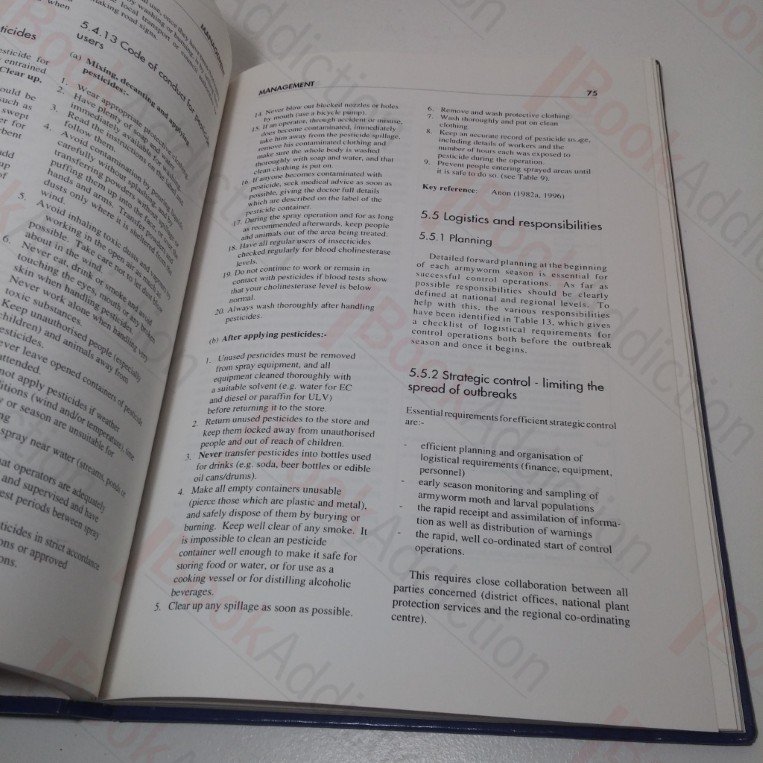 5.4.13 Code of conduct for
users
(a) Mixing, decanting and
pesticides:-
1. Wear appropriate
2. Have plenty of
immediately available
3. Read the instructions
follow them.
4. Avoid contamination by
carefully without
transferring powders
hands and arms. Transfer
dusts only where it is sheltered from the
wind.
5. Avoid inhaling toxic
working in the open air
possible. Take care not to
about in the wind.
6. Never eat, drink or smoke and avoid
touching the eyes, mouth or any
skin when handling pesticides.
Never work alone when handling very
toxic substances.
Keep unauthorised people (especially
children) and animals away from
pesticides.
never leave opened containers of pesticide
MANAGEMENT
75
14. Never blow out blocked nozzles or holes
by mouth (use a bicycle pump).
15. If an operator, through accident or misuse,
does become contaminated, immediately
take him away from the pesticide spillage,
remove his contaminated clothing and
make sure the whole body is washed
thoroughly with soap and water, and that
clean clothing is put on.
16. If anyone becomes contaminated with
pesticide, seek medical advice as soon as
possible, giving the doctor full details
which are described on the label of the
pesticide container.
17. During the spray operation and for as long
as recommended afterwards, keep people
and animals out of the area being treated.
18. Have all regular users of insecticides
checked regularly for blood cholinesterase
levels.
19. Do not continue to work or remain in
contact with pesticides if blood tests show
that your cholinesterase level is below
normal.
20. Always wash thoroughly after handling
pesticides.
(b) After applying pesticides:-
1. Unused pesticides must be removed
from spray equipment, and all
equipment cleaned thoroughly with
a suitable solvent (e.g. water for EC
and diesel or paraffin for ULV)
before returning it to the store.
2. Return unused pesticides to the store and
keep them locked away from unauthorised
people and out of reach of children.
3. Never transfer pesticides into bottles used
for drinks (e.g. soda, beer bottles or edible
oil cans/drums).
4. Make all empty containers unusable
(pierce those which are plastic and metal),
and safely dispose of them by burying or
burning. Keep well clear of any smoke. It
is impossible to clean an pesticide
container well enough to make it safe for
storing food or water, or for use as a
cooking vessel or for distilling alcoholic
beverages.
5. Clear up any spillage as soon as possible.
6. Remove and wash protective clothing.
7. Wash thoroughly and put on clean
clothing.
8. Keep an accurate record of pesticide usage,
including details of workers and the
number of hours each was exposed to
pesticide during the operation.
9. Prevent people entering sprayed areas until
it is safe to do so. (see Table 9).
Key reference: Anon (1982a, 1996)
5.5 Logistics and responsibilities
5.5.1 Planning
Detailed forward planning at the beginning
of each armyworm season is essential for
successful control operations. As far as
possible responsibilities should be clearly
defined at national and regional levels. To
help with this, the various responsibilities
have been identified in Table 13, which gives
a checklist of logistical requirements for
control operations both before the outbreak
season and once it begins.
5.5.2 Strategic control - limiting the
spread of outbreaks
Essential requirements for efficient strategic control
are:-
- efficient planning and organisation of
logistical requirements (finance, equipment,
personnel)
- early season monitoring and sampling of
armyworm moth and larval populations
- the rapid receipt and assimilation of informa-
tion as well as distribution of warnings
- the rapid, well co-ordinated start of control
operations.
This requires close collaboration between all
parties concerned (district offices, national plant
protection services and the regional co-ordinating
centre).